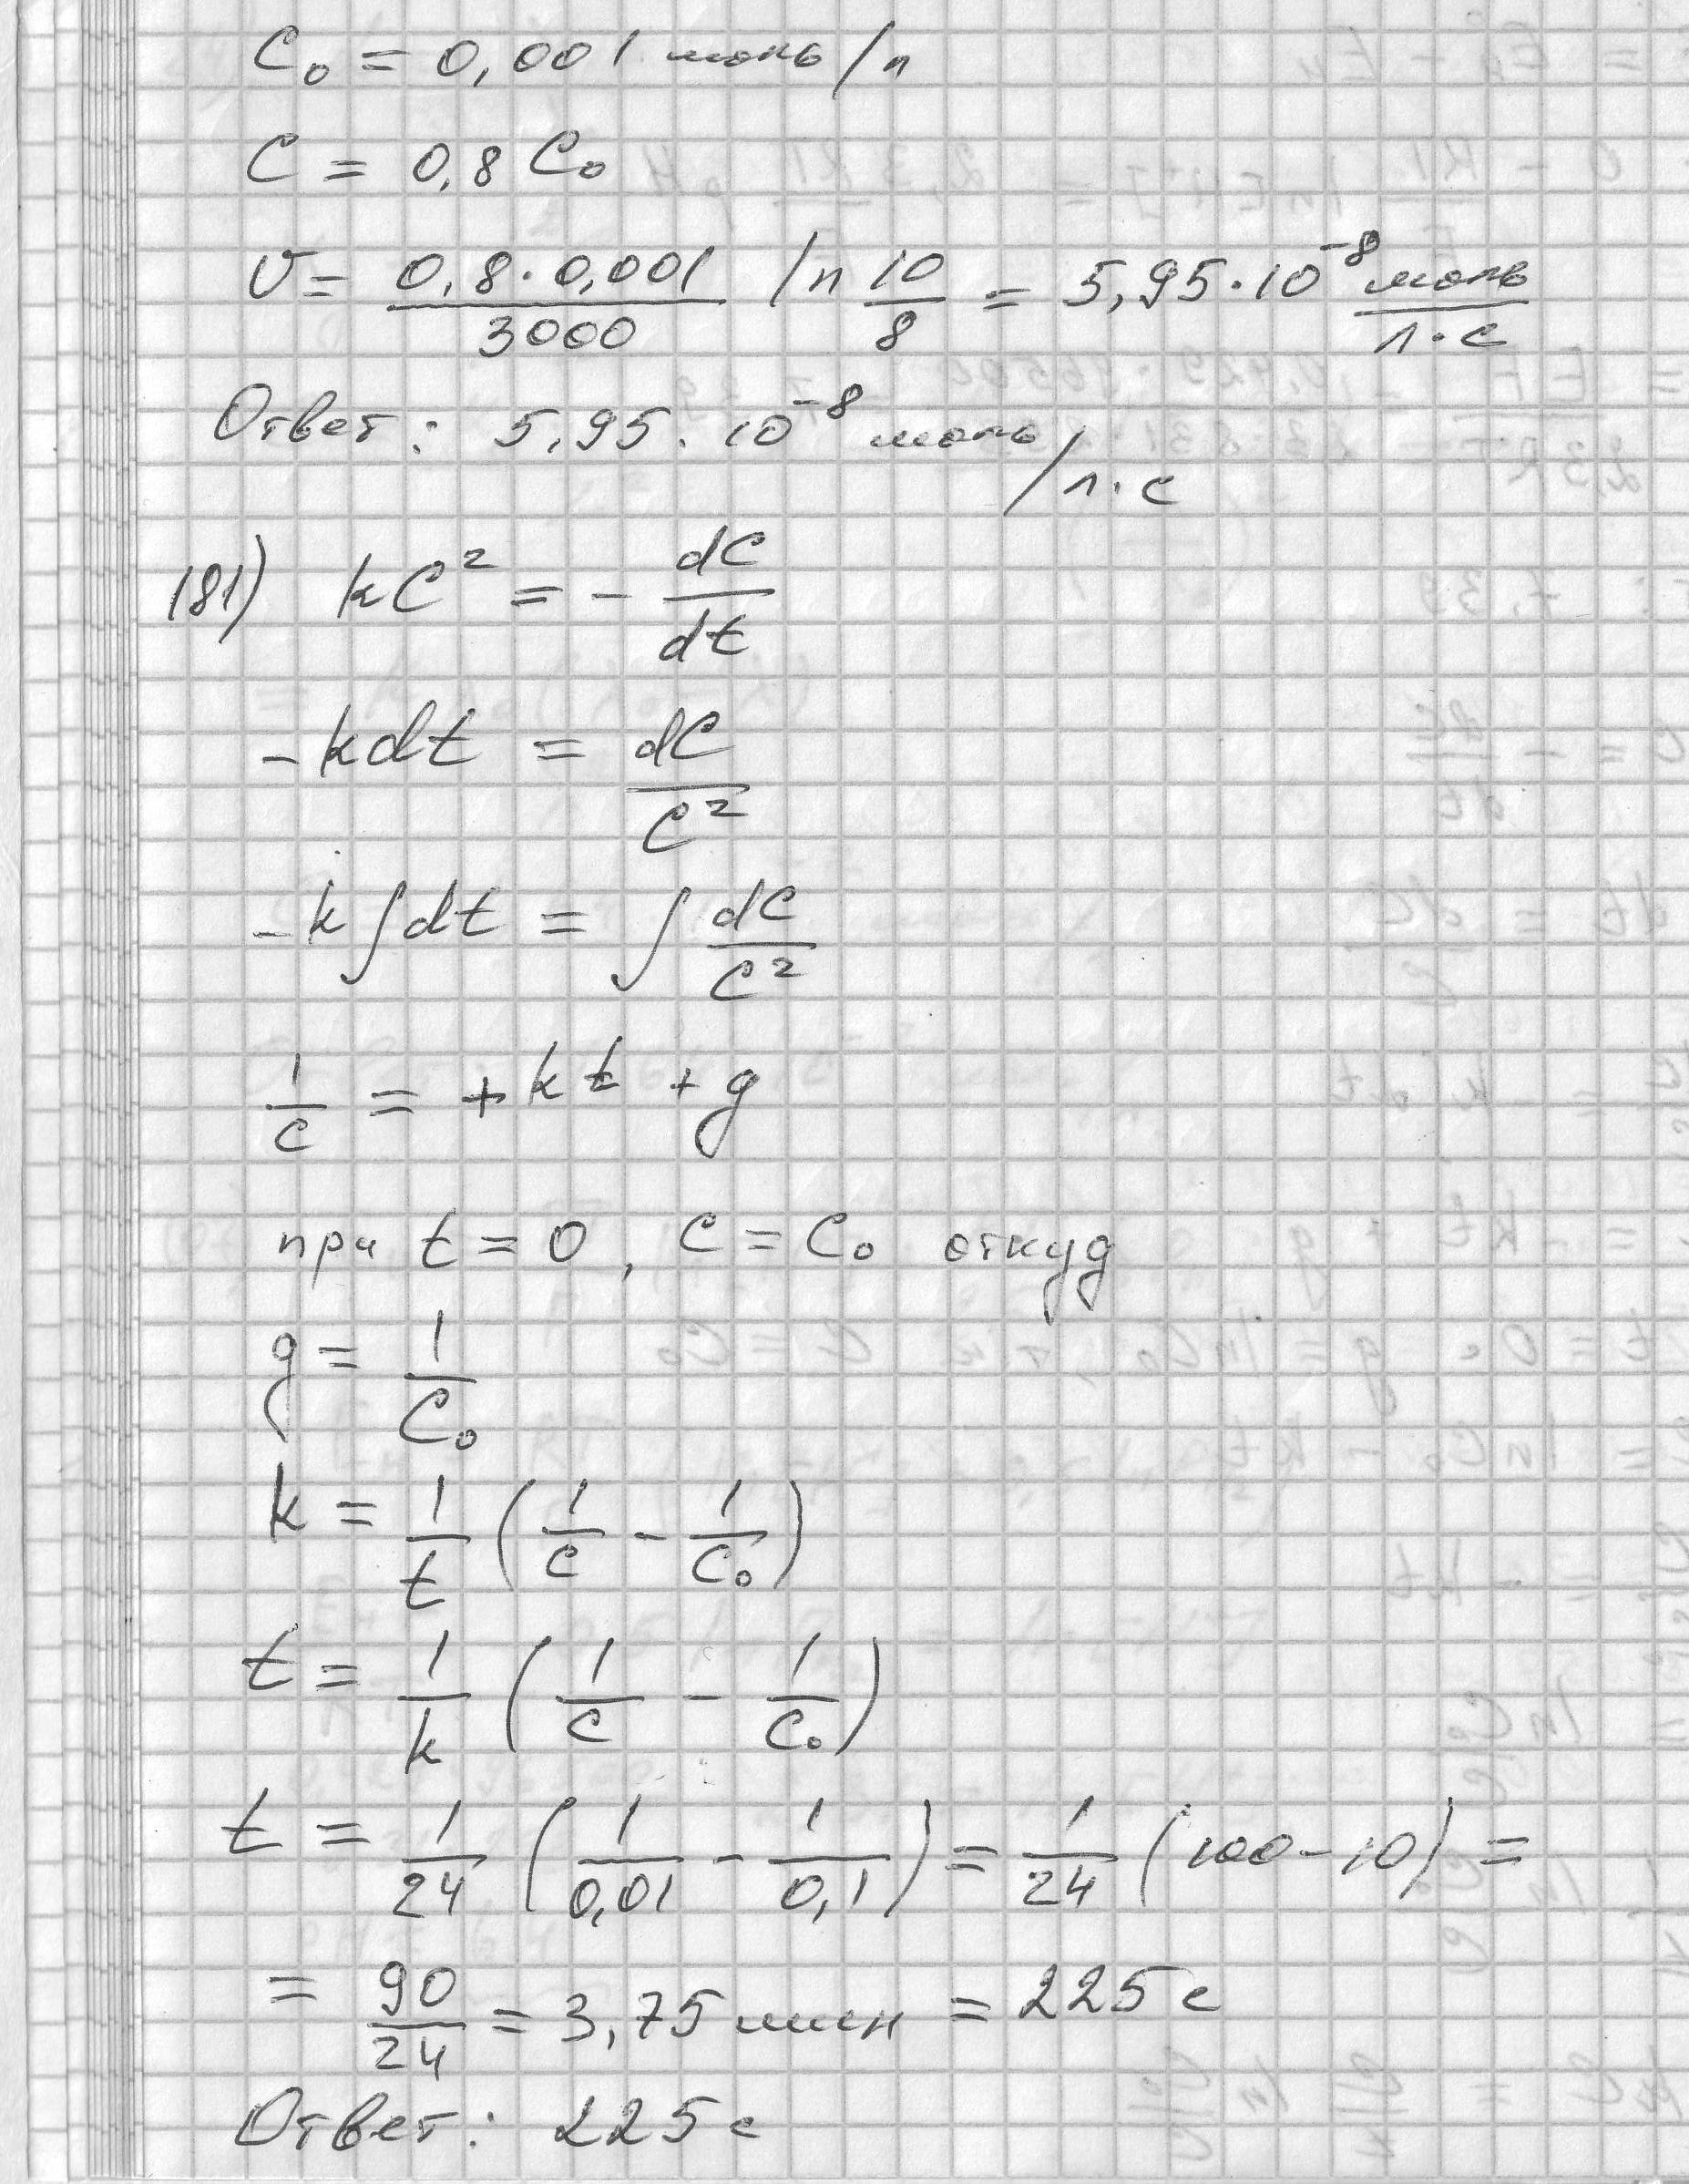 C₀ = 0,001 моль/л
C = 0,8 C₀
υ = (0,8 · 0,001)/3000 ln 10/8 = 5,95 · 10⁻⁸ моль/(л·с)
Ответ: 5,95 · 10⁻⁸ моль/л·с
181) kC² = - dC/dt
-kdt = dC/C²
-k∫dt = ∫ dC/C²
1/C = +kt + g
при t = 0, C = C₀ откуд
g = 1/C₀
k = 1/t (1/C - 1/C₀)
t = 1/k (1/C - 1/C₀)
t = 1/24 (1/0,01 - 1/0,1) = 1/24 (100 - 10) =
= 90/24 = 3,75 мин = 225 с
Ответ: 225 с